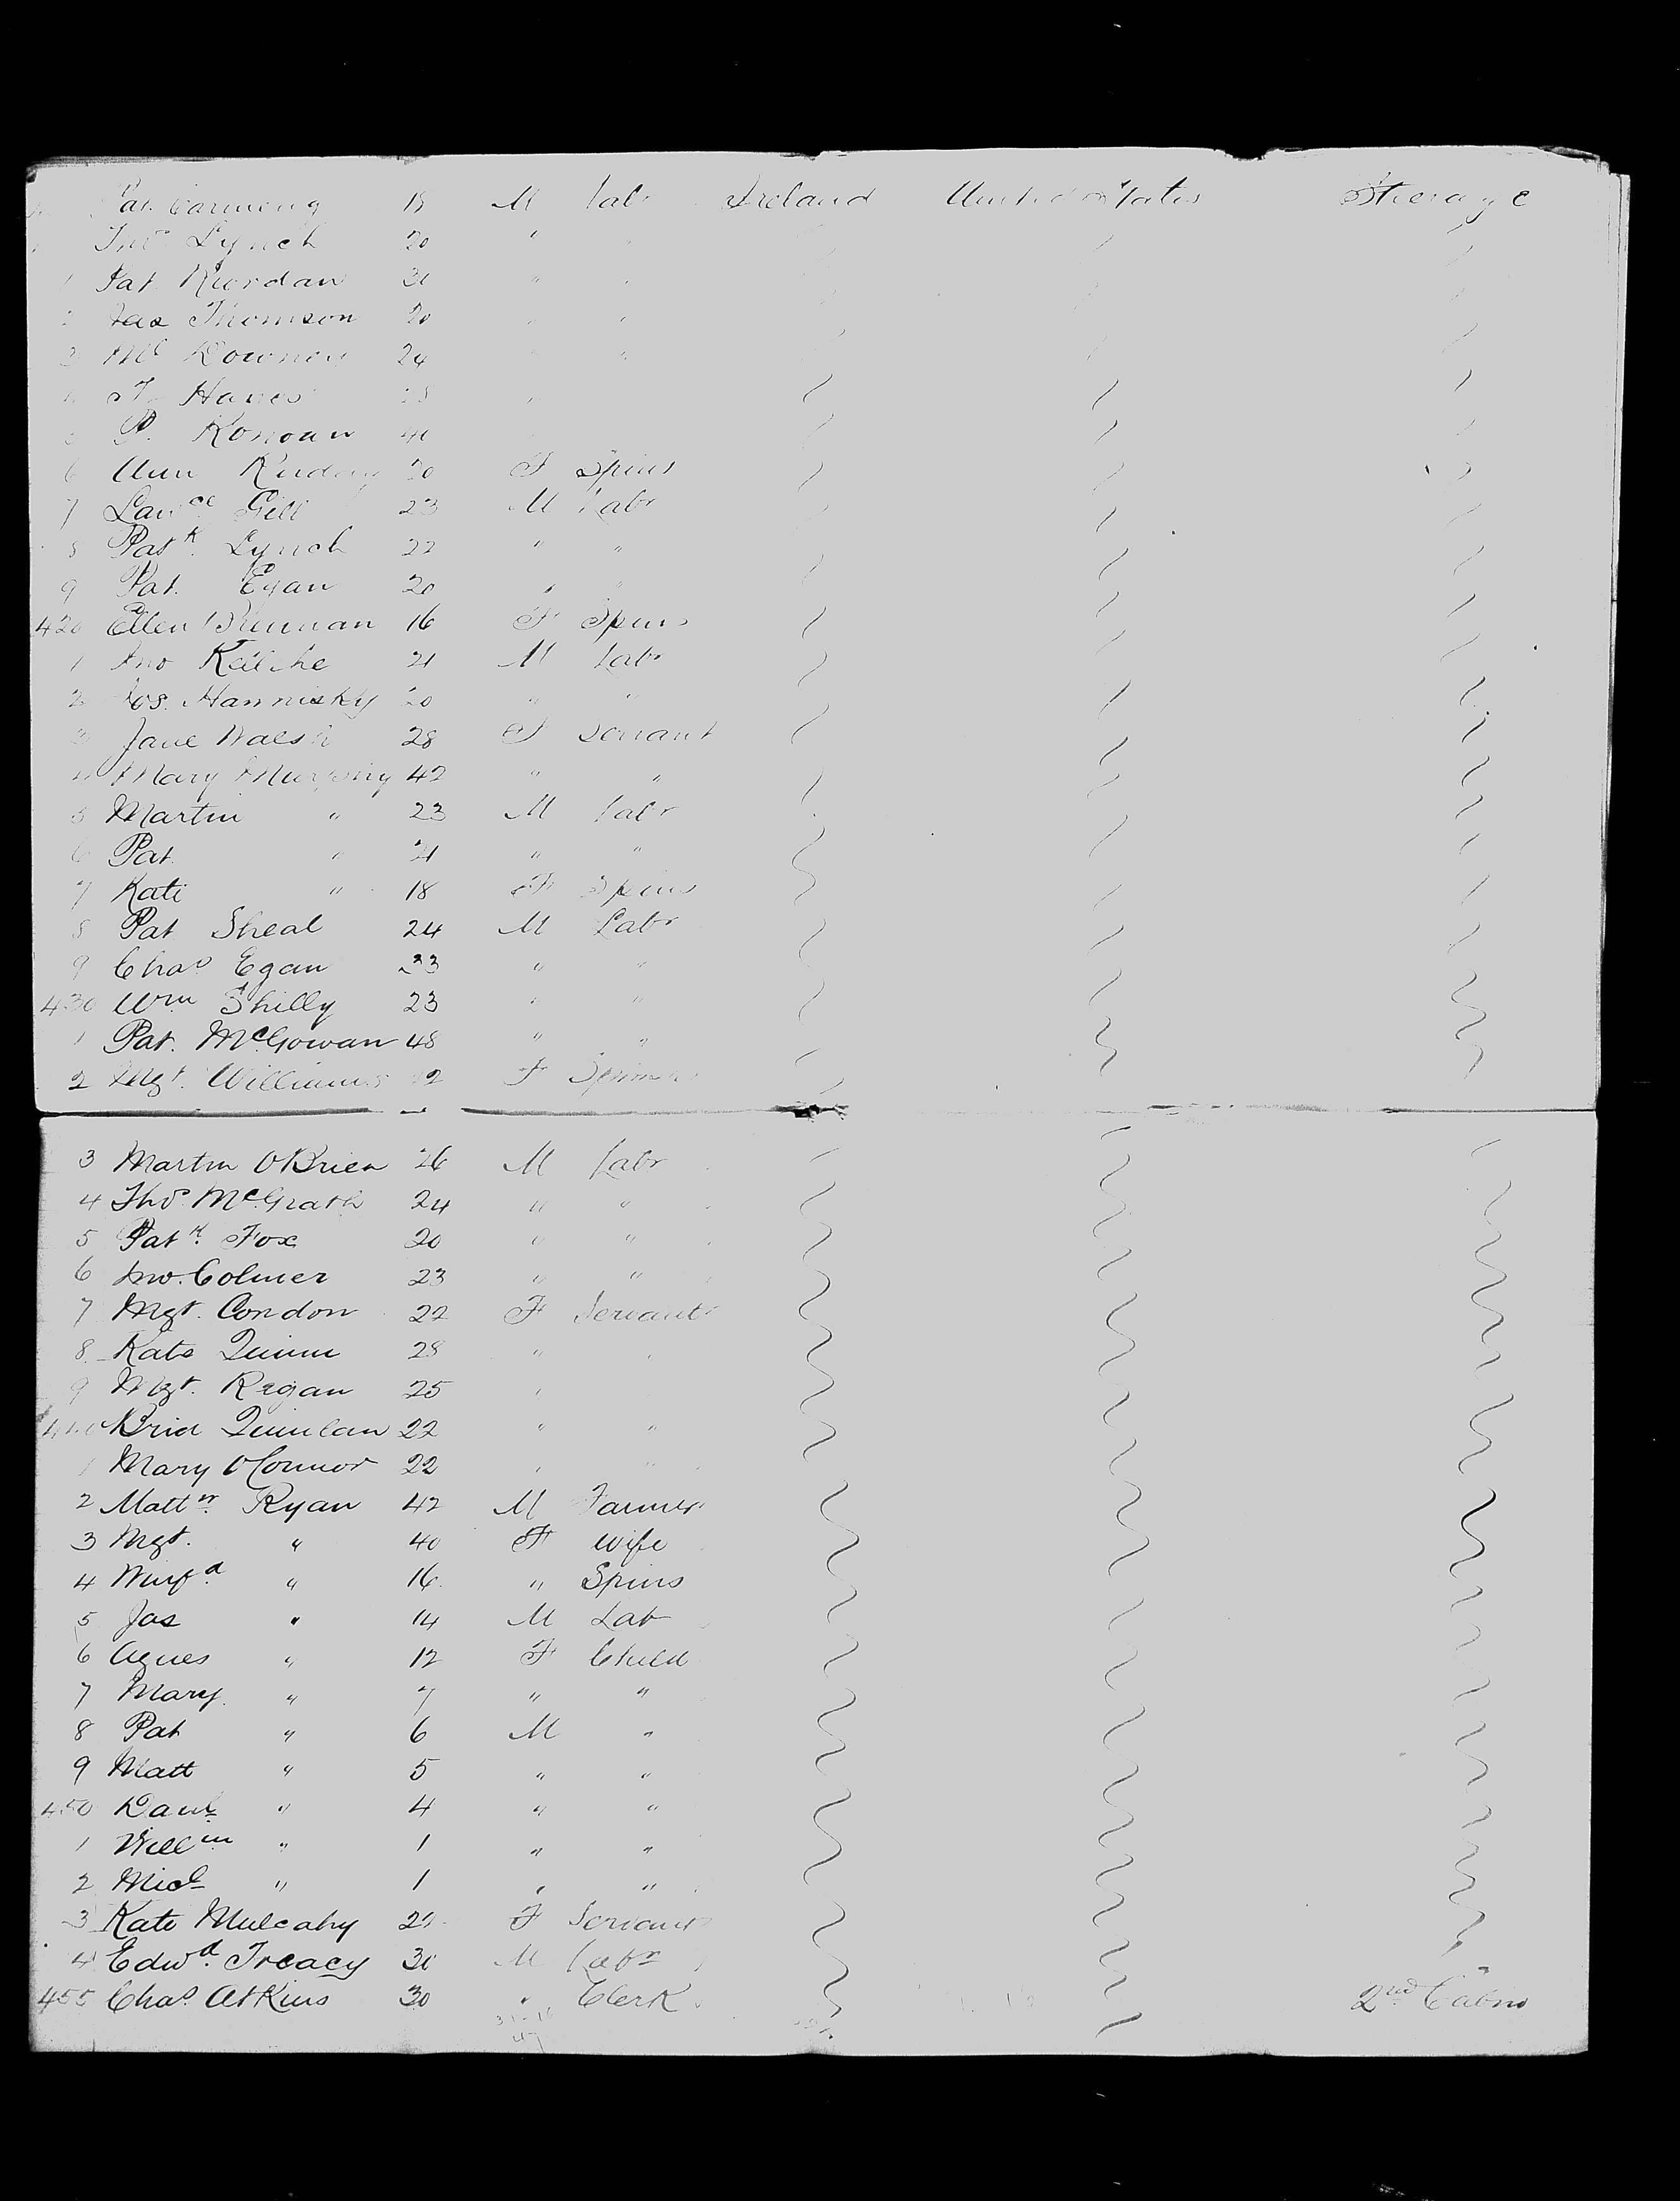 Pat. 18 M Labr Ireland United States Steerage
Jno. Lynch 20 "
1 Pat Riordan 21 "
2 Jas Thomson 20 " "
3 Mc Downey 24 "
Hanes
P. Konoan 40
6 Ann 20 F Spins
7 Lawce Gill 23 M Labr
8 Patk. Lynch 22 " "
9 Pat. Egan 20 " "
420 Ellen Brennan 16 F Spins
1 Jno 21 M Labr
2 Jos. Hannisky 20 " "
3 Jane Walsh 28 F Servant
4 Mary Murphy 42 " "
5 Martin " 23 M Labr
6 Pat. " 21 " "
7 Kate " 18 F Spins
8 Pat Sheal 24 M Labr
9 Chas Egan 23 " "
430 Wm Shilly 23 " "
1 Pat. McGowan 48 " "
2 Mgt. Williams F
3 Martin OBrien 26 M Labr
4 Thos. McGrath 24 " "
5 Patk. Fox 20 " "
6 Jno. Colmer 23 " "
7 Mgt. Condon 22 F Servant
8 Kate Quinn 28 "
9 Mgt. Regan 25 "
440 Brid Quinlan 22 " "
1 Mary OConnor 22 " "
2 Mattw. Ryan 42 M Farmer
3 Mgt. " 40 F Wife
4 Winfd. " 16 " Spins
5 Jas " 14 M Lab
6 Agnes " 12 F Child
7 Mary " 7 " "
8 Pat " 6 M "
9 Matt " 5 " "
450 Danl " 4 " "
1 Willm " 1 " "
2 Micl " 1 " "
3 Kate Mulcahy F Servant
4 Edwd. Treacy 30 M Labr
455 Chas. Atkins 30 " Clerk 2nd Cabin